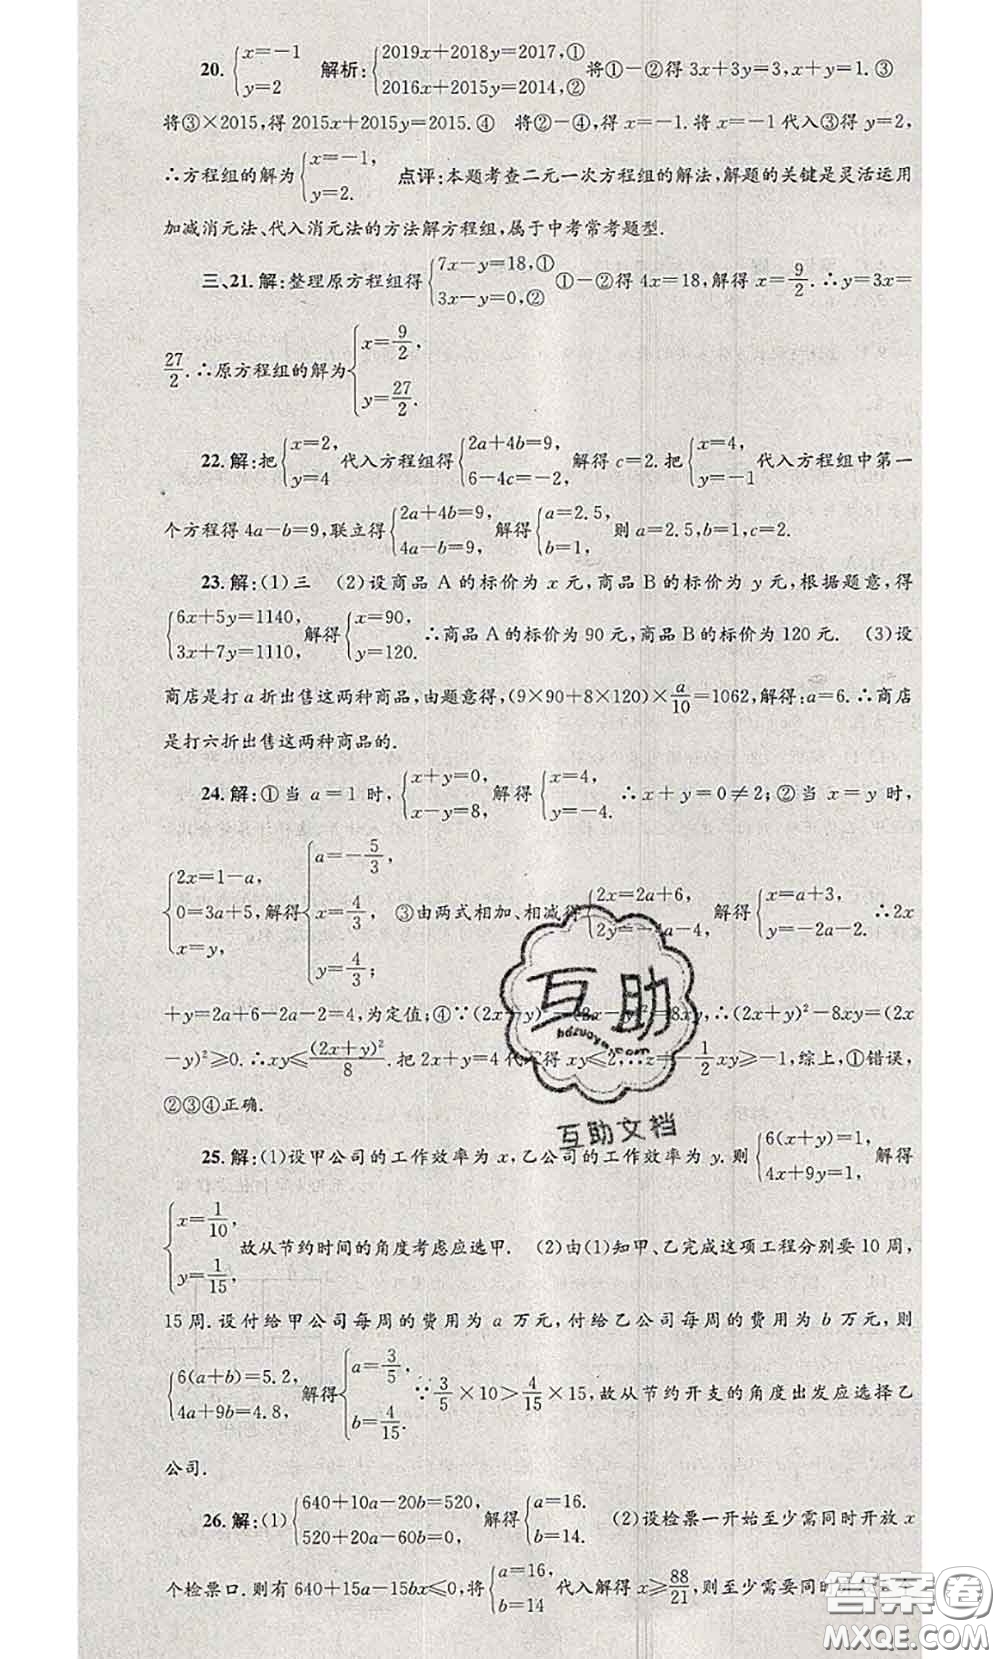 20. {x=-1 y=2 解析: {2019x+2018y=2017,① 2016x+2015y=2014,② 将①-②得 3x+3y=3,x+y=1.③
将③×2015,得 2015x+2015y=2015.④ 将②-④,得 x=-1.将 x=-1代入③得 y=2,
∴方程组的解为{x=-1, y=2. 点评:本题考查二元一次方程组的解法,解题的关键是灵活运用
加减消元法、代入消元法的方法解方程组,属于中考常考题型.
三、21.解:整理原方程组得{7x-y=18,① 3x-y=0,② ①-②得 4x=18,解得 x=9/2.∴y=3x=
27/2.∴原方程组的解为{x=9/2, y=27/2.
22.解:把{x=2, y=4 代入方程组得{2a+4b=9, 6-4c=-2, 解得 c=2.把{x=4, y=-1 代入方程组中第一
个方程得 4a-b=9,联立得{2a+4b=9, 4a-b=9, 解得{a=2.5, b=1, 则 a=2.5,b=1,c=2.
23.解:(1)三 (2)设商品 A 的标价为 x 元,商品 B 的标价为 y 元,根据题意,得
{6x+5y=1140, 3x+7y=1110, 解得{x=90, y=120. ∴商品A的标价为 90 元,商品B的标价为 120 元. (3)设
商店是打 a 折出售这两种商品,由题意得,(9×90+8×120)×a/10=1062,解得:a=6.∴商店
是打六折出售这两种商品的.
24.解:①当 a=1 时,{x+y=0, x-y=8, 解得{x=4, y=-4. ∴x+y=0≠2;②当 x=y 时,
{2x=1-a, 0=3a+5, x=y, 解得{a=-5/3, x=4/3, y=4/3; ③由两式相加、相减得{2x=2a+6, 2y=-4a-4, 解得{x=a+3, y=-2a-2. ∴2x
+y=2a+6-2a-2=4,为定值;④∵(2x+y)²=(2x-y)²+8xy,∴(2x+y)²-8xy=(2x
-y)²≥0.∴xy≤(2x+y)²/8.把 2x+y=4代入得 xy≤2,∴z=-1/2xy≥-1,综上,①错误,
②③④正确.
25.解:(1)设甲公司的工作效率为 x,乙公司的工作效率为 y.则{6(x+y)=1, 4x+9y=1, 解得
{x=1/10, y=1/15, 故从节约时间的角度考虑应选甲. (2)由(1)知甲、乙完成这项工程分别要 10 周,
15 周.设付给甲公司每周的费用为 a 万元,付给乙公司每周的费用为 b 万元,则
{6(a+b)=5.2, 4a+9b=4.8, 解得{a=3/5, b=4/15. ∵3/5×10>4/15×15,故从节约开支的角度出发应选择乙
公司.
26.解:(1){640+10a-20b=520, 520+20a-60b=0, 解得{a=16. b=14. (2)设检票一开始至少需同时开放 x
个检票口.则有 640+15a-15bx≤0,将{a=16, b=14 代入解得 x≥88/21,则至少需要同时
互助
hdzuoye.com
互助文档
答案圈
MXQE.COM